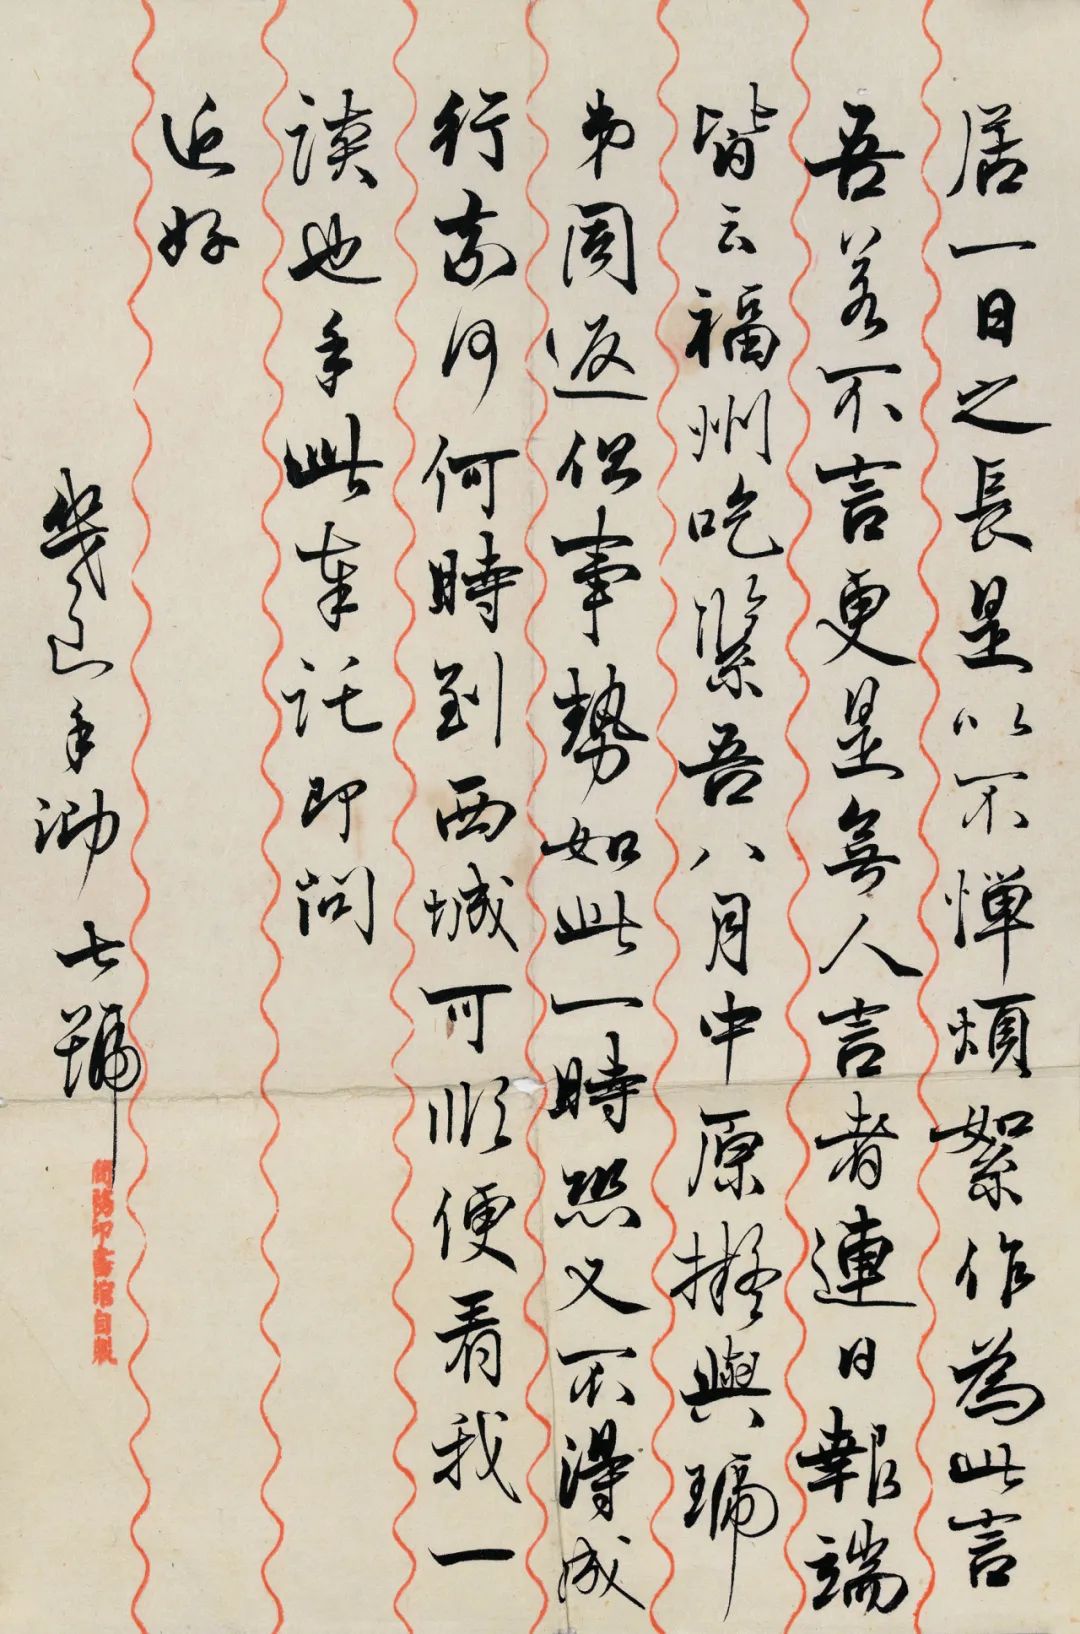 居一日之長是以不憚煩絮作為此言
吾若不言更是無人言者連日報端
皆云福州吃緊吾八月中原擬與瑞
弟同返但事勢如此一時恐又不得成
行矣 何時到西城可順便看我一
談也手此奉託即問
近好
幾道手泐 七號
商務印書館自製